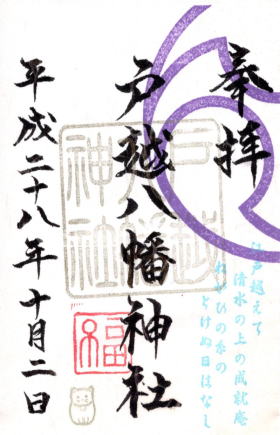 奉拝
戸越八幡神社
平成二十八年十月二日
戸越八幡神社
福
江戸越えて
清水の上の成就庵
ねがひの糸の
とけぬ日はなし